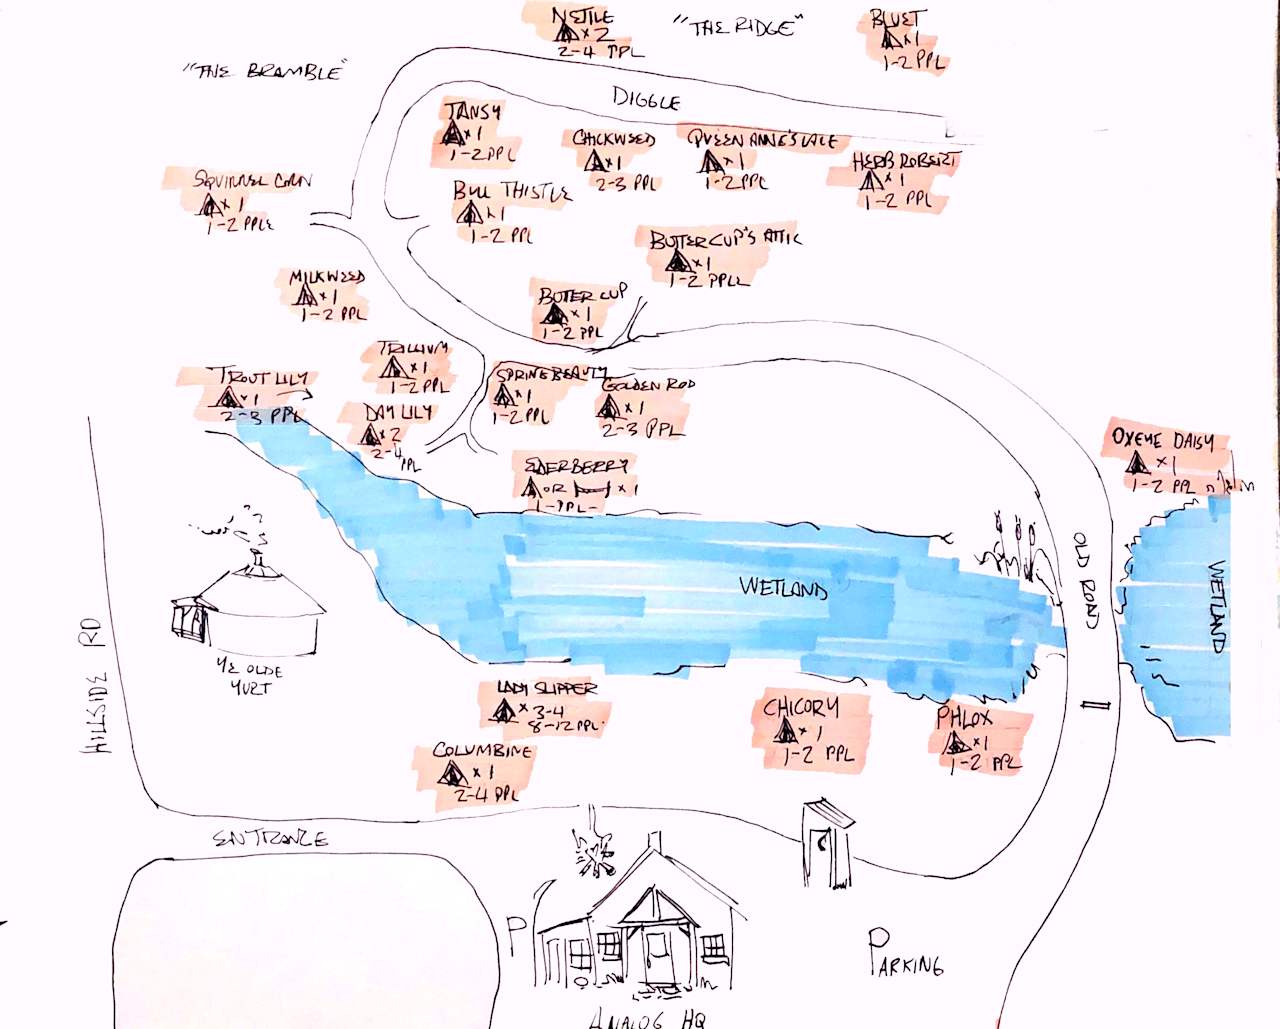 NETTLE
x 2
2-4 PPL
"THE RIDGE"
BLUET
x 1
1-2 PPL
"THE BRAMBLE"
DIGGLE
TANSY
x 1
1-2 PPL
CHICKWEED
x 1
2-3 PPL
QUEEN ANNE'S LACE
x 1
1-2 PPL
HERB ROBERT
x 1
1-2 PPL
SQUIRREL CORN
x 1
1-2 PPLE
BULL THISTLE
x 1
1-2 PPL
BUTTERCUP'S ATTIC
x 1
1-2 PPLE
MILKWEED
x 1
1-2 PPL
BUTERCUP
x 1
1-2 PPL
TRILLIUM
x 1
1-2 PPL
TROUT LILY
x 1
2-3 PPL
SPRING BEAUTY
x 1
1-2 PPL
GOLDEN ROD
x 1
2-3 PPL
DAY LILY
x 2
2-4
PPL
ELDERBERRY
OR x 1
1-PPL-
OXEYE DAISY
x 1
1-2 PPL
OLD ROAD
WETLAND
WETLAND
YE OLDE
YURT
HILLSIDE RD
LADY SLIPPER
x 3-4
8-12 PPL
CHICORY
x 1
1-2 PPL
PHLOX
x 1
1-2 PPL
COLUMBINE
x 1
2-4 PPL
ENTRANCE
P
PARKING
ANALOG HQ